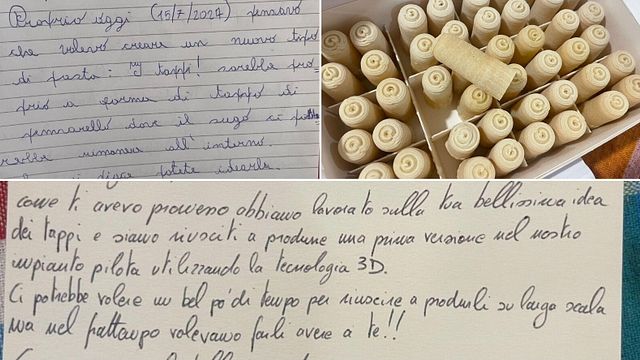 Proprio oggi (15/7/2024) pensavo
che volevo creare un nuovo tipo
di pasta: "I tappi! sarebbe pro-
prio a forma di tappo di
pennarello dove il sugo ci po
rebbe rimanere all'interno.
dire potete idearla.
come ti avevo promesso abbiamo lavorato sulla tua bellissima idea
dei tappi e siamo riusciti a produrne una prima versione nel nostro
impianto pilota utilizzando la tecnologia 3D.
Ci potrebbe volere un bel po' di tempo per riuscire a produrli su larga scala
ma nel frattempo volevamo farli avere a te!!